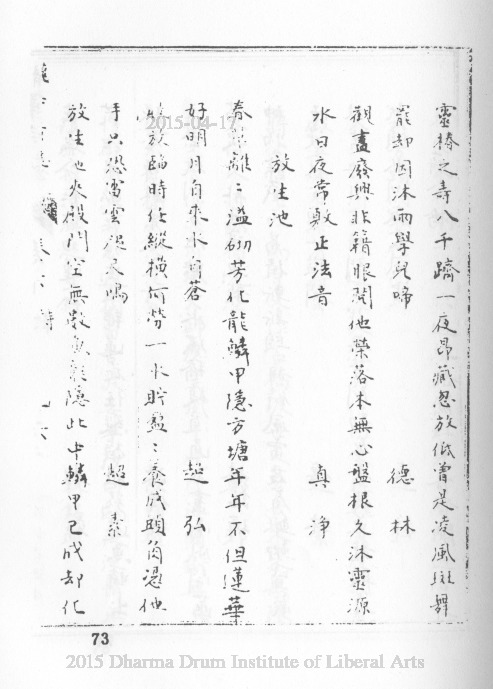 靈椿之壽八千躋一夜昂藏忽放低曾是凌風斑舞
罷却因沐雨學兒啼 德林
觀盡廢興非籍眼閱他榮落本無心盤根久沐靈源
水日夜常敷正法音 真淨
放生池
春離離溢砌芳化龍鱗甲隱方塘年年不但蓮華
好明月自來水自蒼 超弘
放臨時任縱橫何勞一水貯盈盈養成頭角憑他
手只恐雲起又鳴 超素
放生池夾殿門空無數魚龍隱此中鱗甲已成却化
73
2015-04-17
2015 Dharma Drum Institute of Liberal Arts